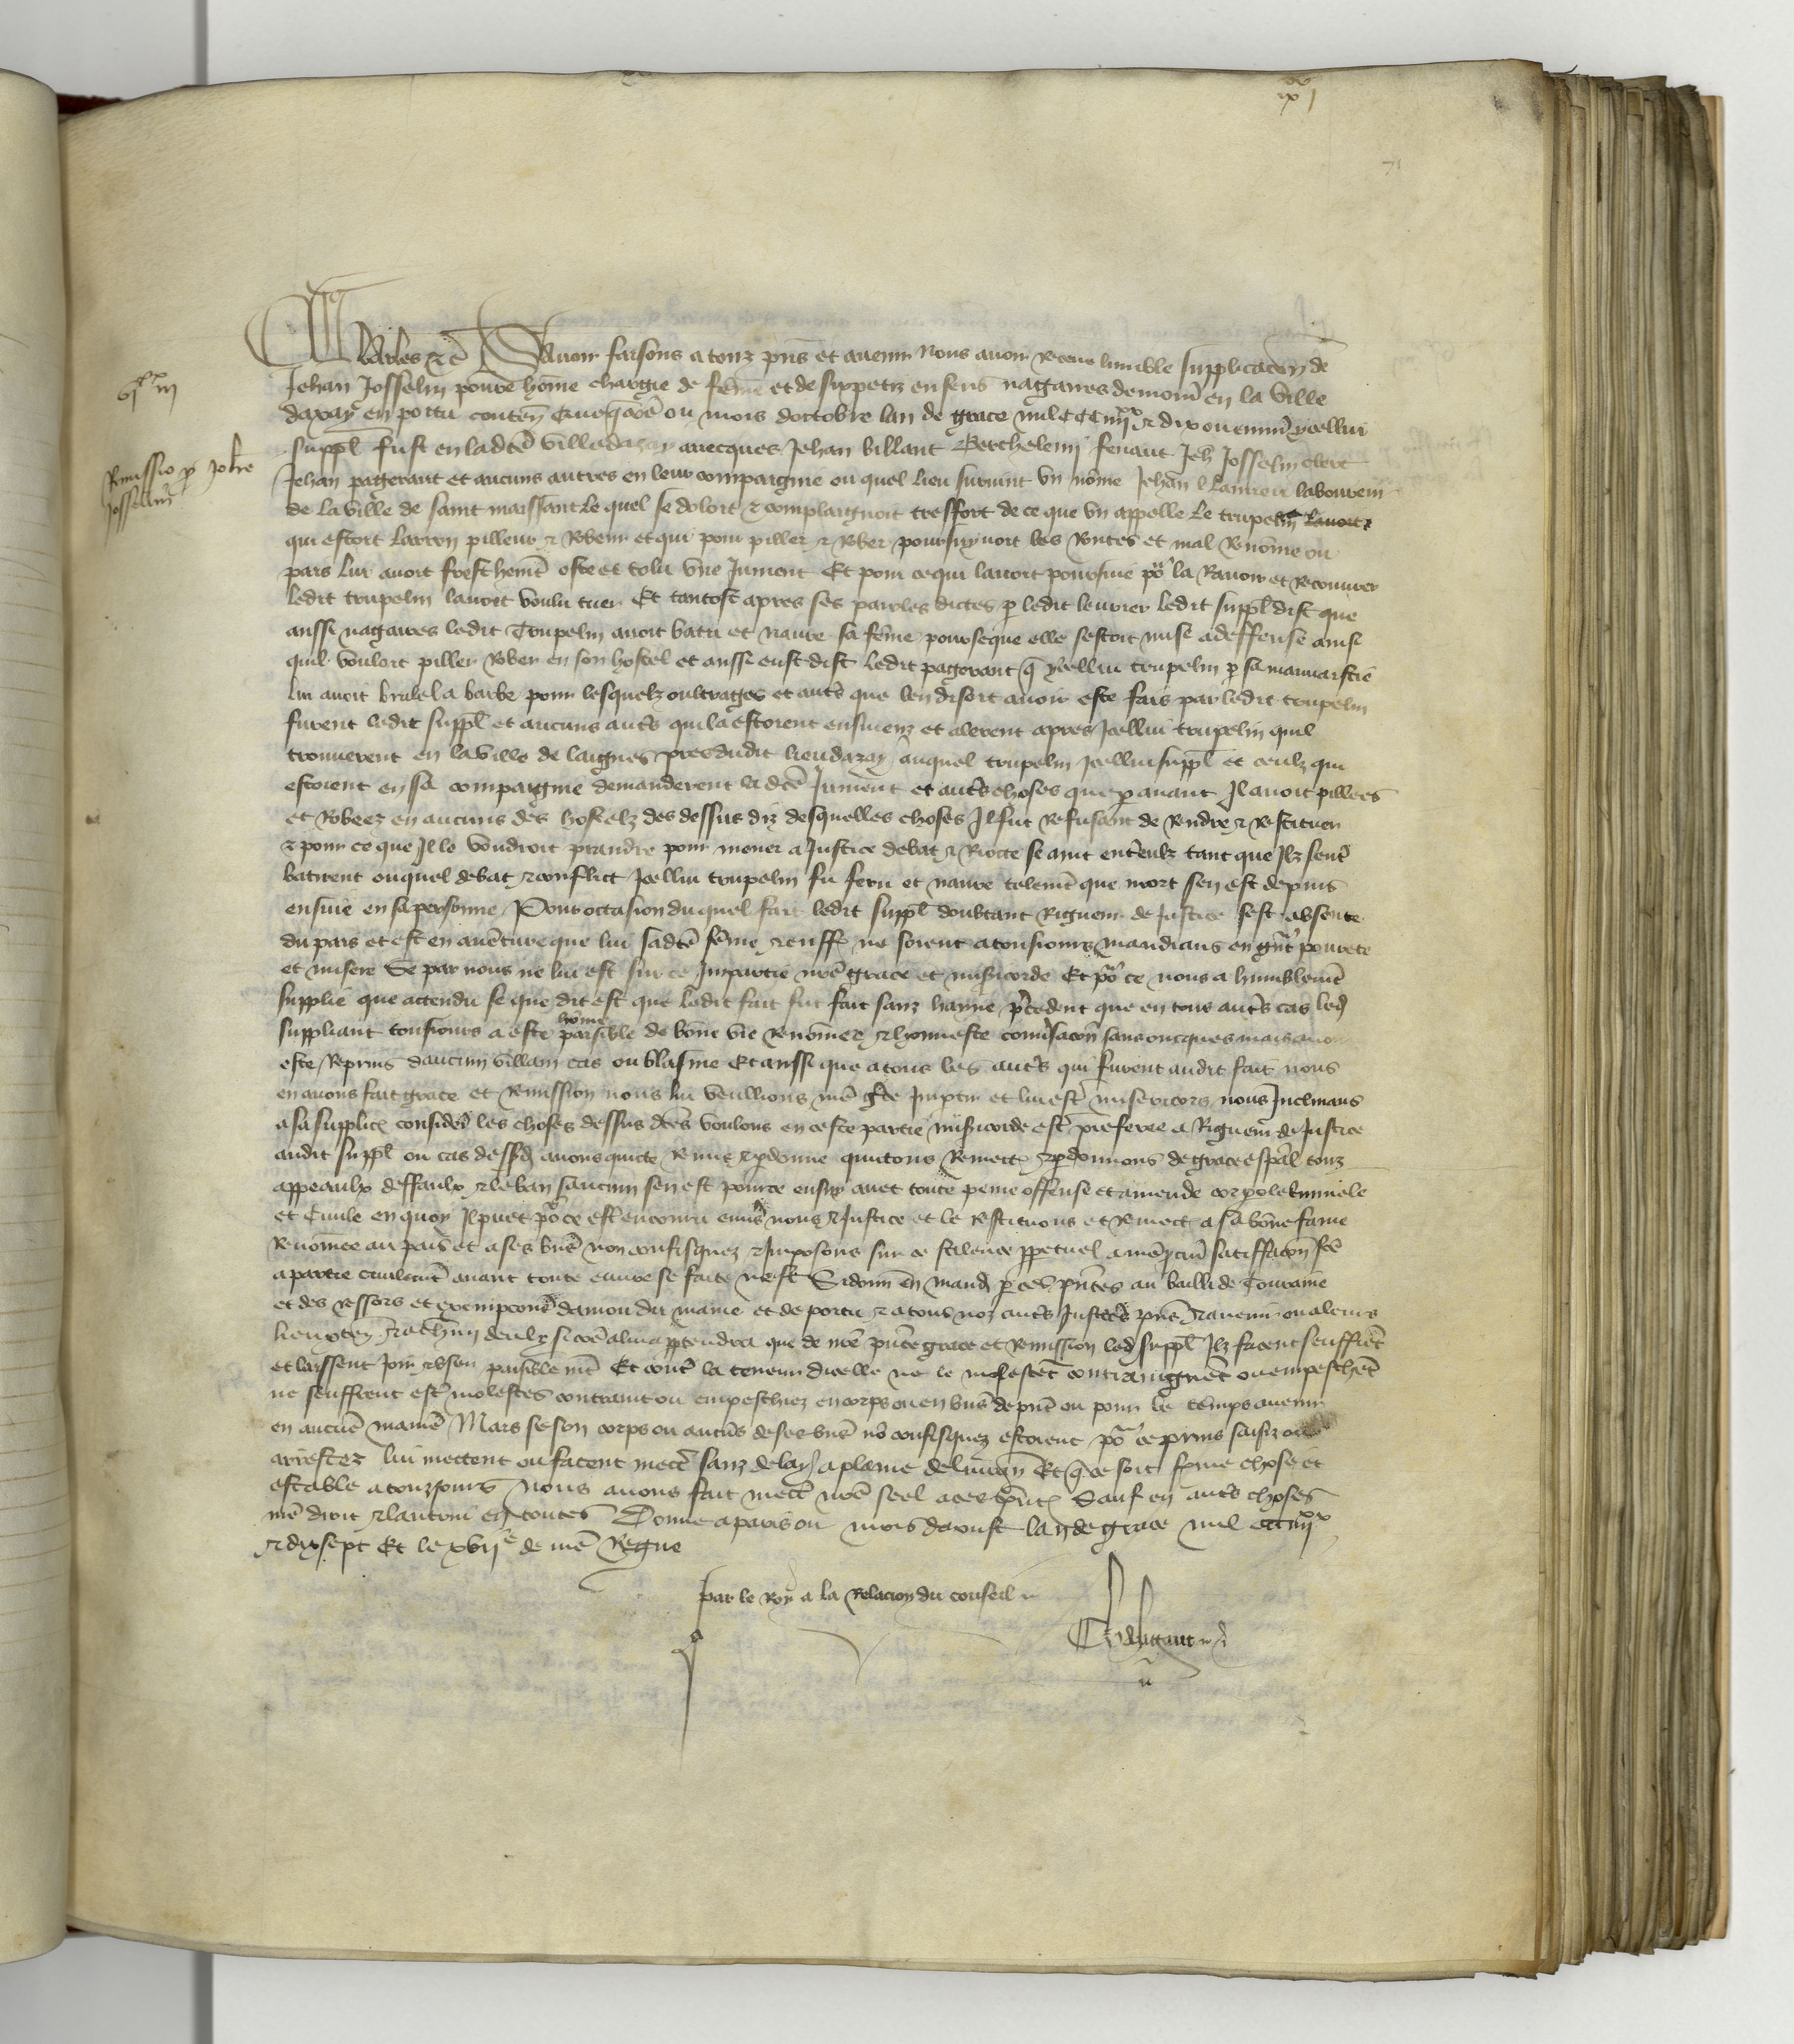 71
Charles etc Savoir faisons a touz pns et avenir nous avoir receue lumble supplicacion de
Jehan Josselin povre home chargie de feme et de six petiz enfens nagaires demour en la ville
dazay en poitu conten que ou mois doctobre lan de grace mil CCC iiii xx et dix ou environ ycellui
suppl fust en ladce ville dazay avecques Jehan billant Berthelemi fenaut Jeh Josselin clerc
Jehan pagerant et aucuns autres en leur compaignie ou quel lieu survint un nome Jehan laboureur
de la ville de saint maissant le quel se doloit et complaignoit tresfort de ce que un appelle le trupelin lavoit
qui estoit larron pilleur et robeur et qui pour piller et rober poursuyvoit les routes et mal renome ou
pais lui avoit freschemt oste et tolu une jument Et pour ce qui lavoit poursui por la ravoir et recouvrer
ledit trupelin lavoit voulu tuer Et tantost apres ses paroles dictes p ledit levrier ledit suppl dist que
aussi nagaires ledit trupelin avoit batu et navre sa feme pourseque elle sestoit mise a deffense ainsi
quil vouloit piller rober en son hostel et aussi eust dist ledit pagerant q ycellui trupelin p sa mauvaistie
lui avoit brule la barbe pour lesquelz oultrages et auts que len disoit avoir este fais par ledit trupelin
furent ledit suppl et aucuns auts qui la estoient ensmeuz et alerent apres icellui trupelin quil
trouverent en la ville de laignes pres dudit lieu dazay auquel trupelin icellui suppl et ceulz qui
estoient en sa compaignie demanderent la dce jument et auts choses que p avant il avoit pillees
et robeez en aucuns des hostelz des dessus diz desquelles choses il fut refusant de rendre et restituer
et pour ce que il le voudroit prandre pour mener a justice debat et riote se mut entre eulz tant que ilz sent
batirent ouquel debat et conflict icellui trupelin fu feru et navre telemt que mort sen est depuis
ensuie en sa personne Pour occasion duquel fait ledit suppl doubtant rigueur de justice sest absente
du pais et est en aventure que lui sadce feme et enff ne soient a tousiours mandians en gnt povrete
et misere Se par nous ne lui est sur ce impartie nre grace et misicorde Et por ce nous a humblemt
supplie que actendu se que dit est que ledit fait fut fait sanz hayne pcedent que en tous auts cas led
suppliant tousiours a este home paisible de bone vie renomee et honneste conversacon sans oncques mais avoir
este repris daucun villain cas ou blasme Et aussi que a tous les auts qui furent audit fait nous
en avons fait grace et remission nous lui veullions nre gce impartir et lui est misericors nous inclinans
a sa supplic consider les choses dessus dces voulons en ceste partie misicorde est preferee a rigueur de justice
audit suppl ou cas dessd avons quicte remis et pdonne quictons remect et pdonnons de grace espal touz
appeaulx deffaulx et le ban saucun sen est pour ce ensuy avec toute peine offense et amende corporele criminele
et civile en quoy il puet por ce est encouru envs nous et justice et le restituons et remect a sa bone fame
renomee au pais et a ses biens non confisquez et imposons sur ce scilence ppetuel a nre procur satiffacon fce
a partie civilemt avant toute euvre se faite nest Si donn en mand p ces pntes au bailli de touraine
et des ressors et exempcions damou du maine et de poitu et a tous noz auts justic pns et avenir ou a leurs
lieuxten et a chun deulx si come a lui apptendra que de nre pnte grace et remission led suppl ilz facent seuffrent
et laissent joir et user paisiblemt Et contre la teneur dicelle ne le molestent contraignent ou empeschent
ne seuffrent est molestes contraint ou empeschiez en corps ou en biens de pnt ou pour le temps avenir
en aucune maniere Mais se son corps ou aucuns de ses biens no confisquez estoient por ce prins saisiz ou
arrestez lui mectent ou facent mect sanz delay a plaine delivran Et q ce soit ferme chose et
estable a touzjours nous avons fait mect nre seel a ces pntes Sauf en auts choses
nre droit et lautrui en toutes Donne a paris ou mois daoust lan de grace mil ccc iiii xx
et dix sept Et le xvii e de nre Regne
par le Roy a la Relacion du conseil
Remissio p Johe
Josselin